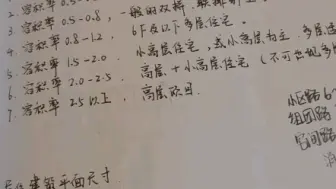 容积率 0.5-0.8, 一般的双拼、联排
4. 容积率 0.8-1.2, 6F及以下多层住宅。
5. 容积率 1.5-2.0. 小高层住宅，或小高层为主，多层
6. 容积率 2.0-2.5, 高层+小高层住宅（不可出现多
7. 容积率 2.5以上， 高层项目.
小区路 6
组团路
宅间路
建筑平面尺寸